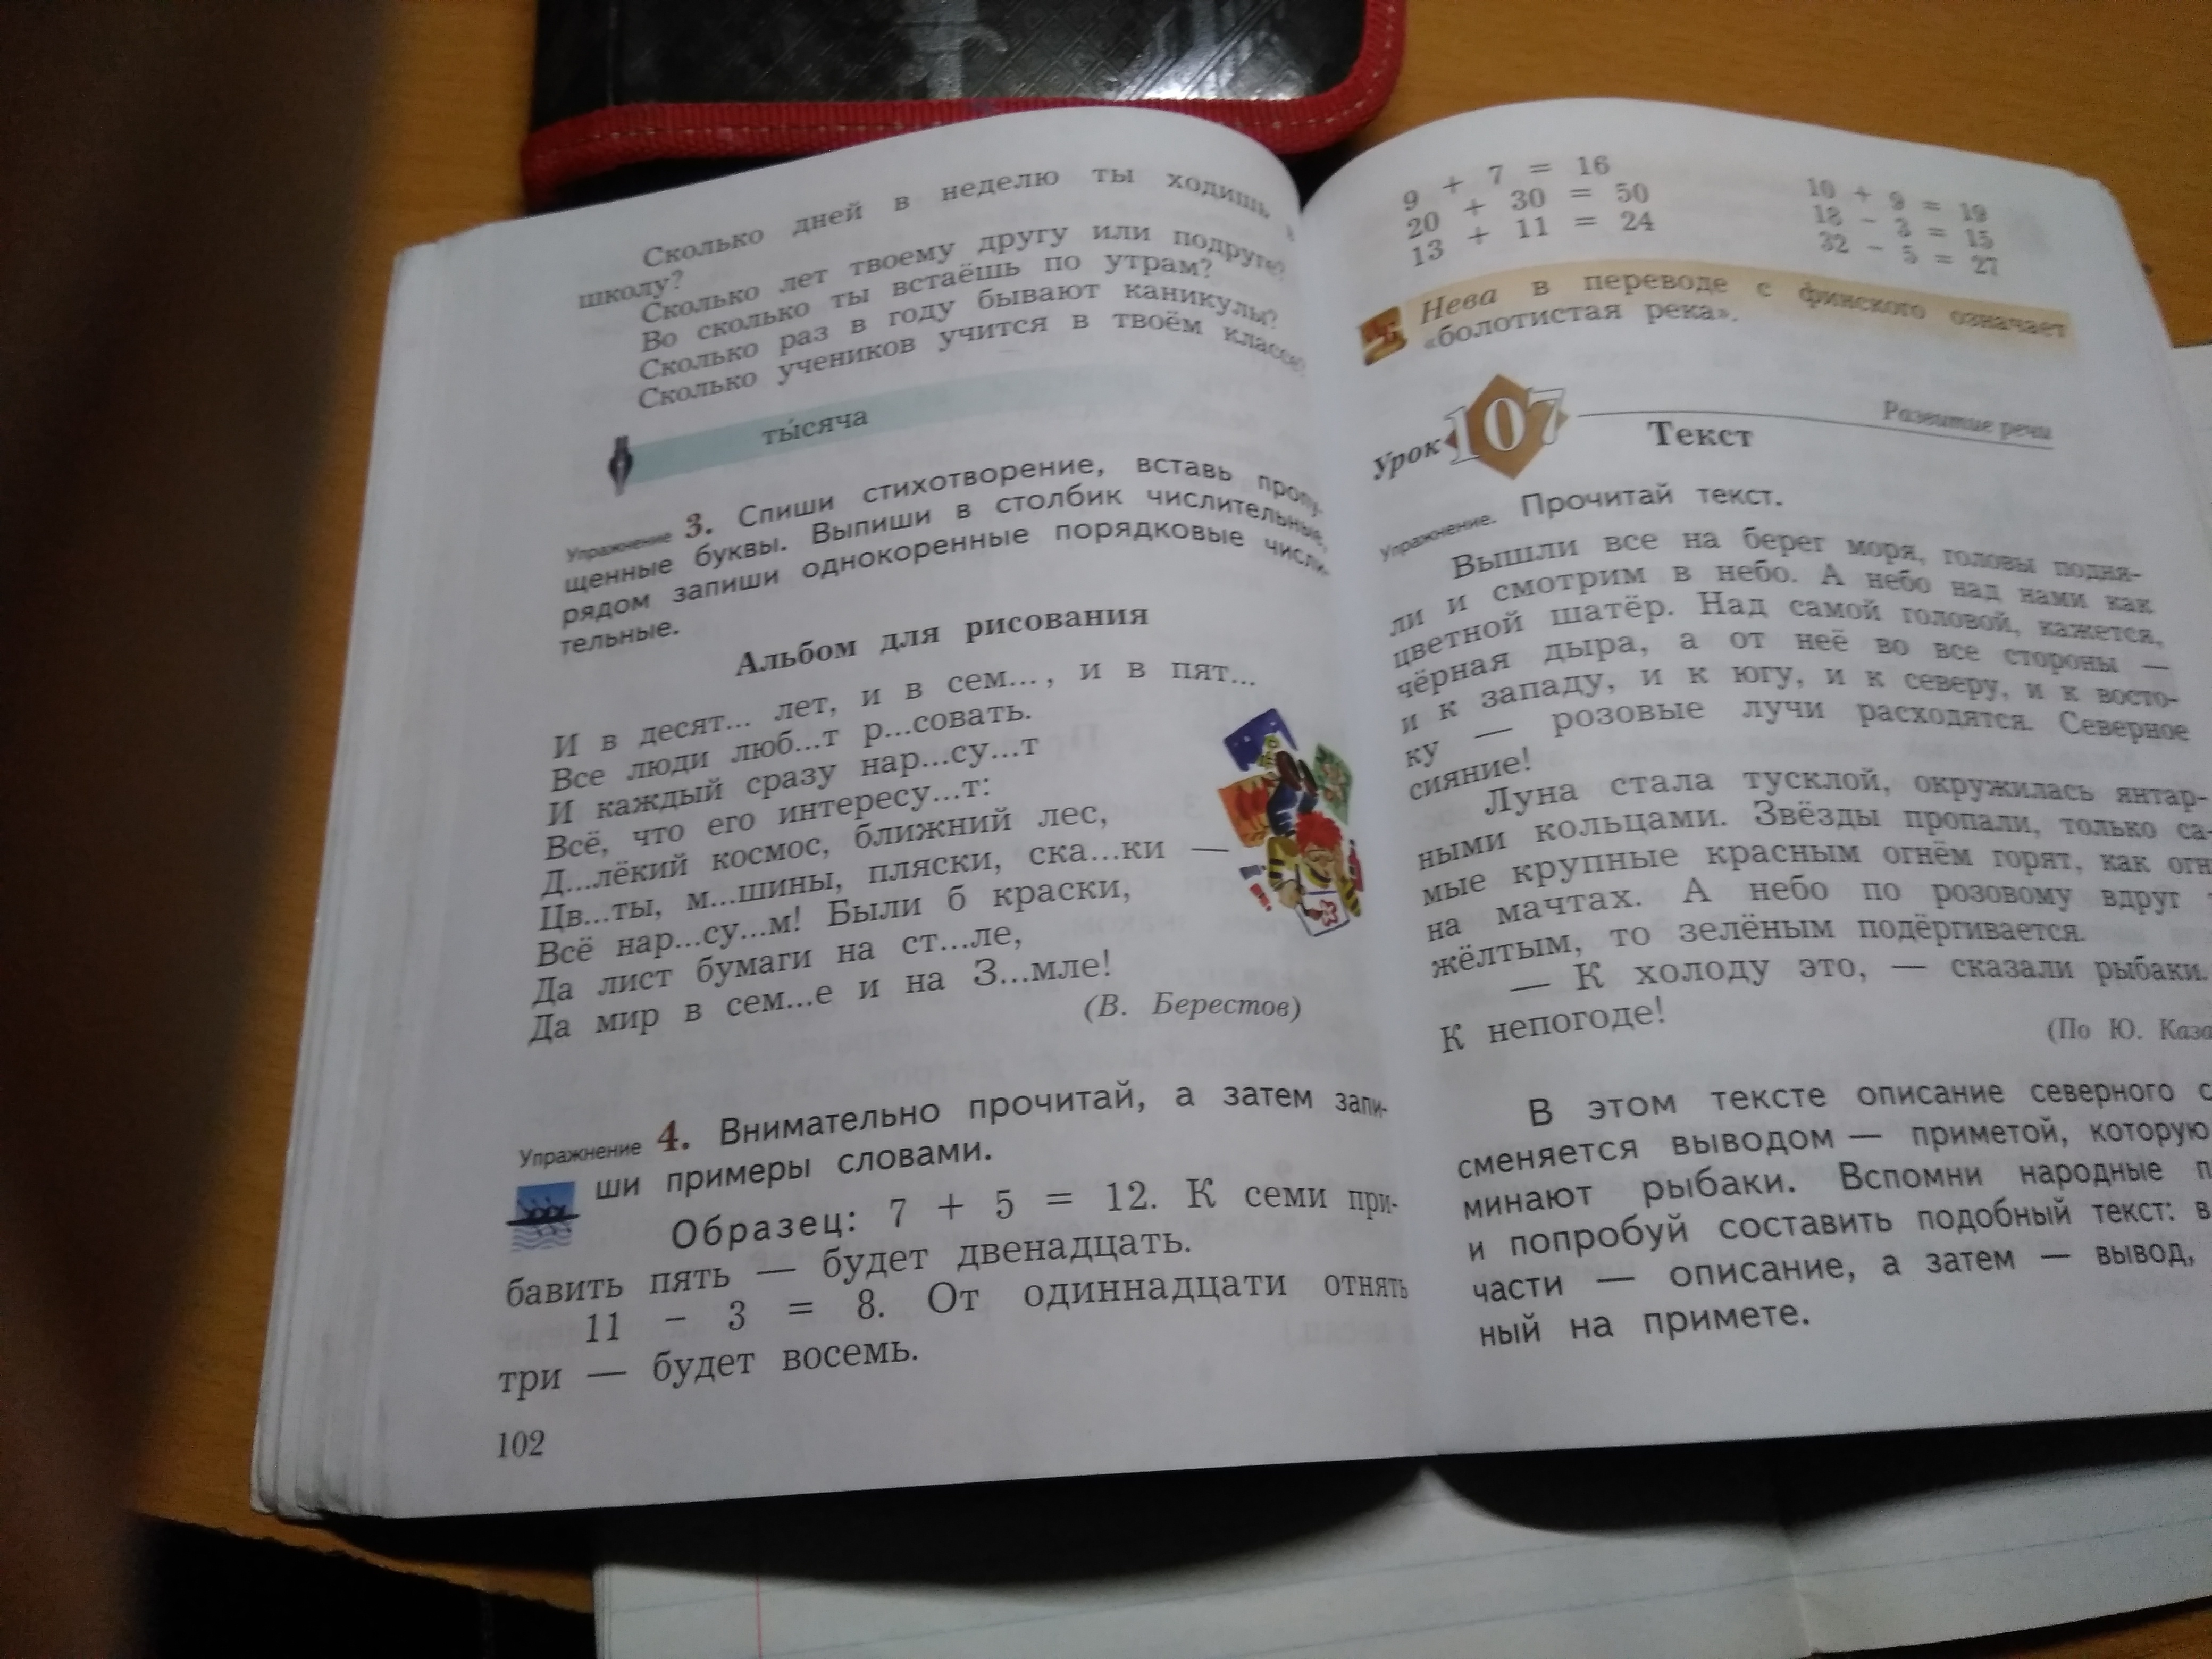 Сколько дней в неделю ты ходишь в
школу?
Сколько лет твоему другу или подруге?
Во сколько ты встаёшь по утрам?
Сколько раз в году бывают каникулы?
Сколько учеников учится в твоём классе?
ты́сяча
Упражнение 3. Спиши стихотворение, вставь пропу-
щенные буквы. Выпиши в столбик числительные,
рядом запиши однокоренные порядковые числи-
тельные.
Альбом для рисования
И в десят... лет, и в сем..., и в пят...
Все люди люб...т р...совать.
И каждый сразу нар...су...т
Всё, что его интересу...т:
Д...лёкий космос, ближний лес,
Цв...ты, м...шины, пляски, ска...ки —
Всё нар...су...м! Были б краски,
Да лист бумаги на ст...ле,
Да мир в сем...е и на З...мле!
(В. Берестов)
Упражнение 4. Внимательно прочитай, а затем запи-
ши примеры словами.
Образец: 7 + 5 = 12. К семи при-
бавить пять — будет двенадцать.
11 – 3 = 8. От одиннадцати отнять
три — будет восемь.
102
9 + 7 = 16 10 + 9 = 19
20 + 30 = 50 18 – 3 = 15
13 + 11 = 24 32 – 5 = 27
Нева в переводе с финского означает
«болотистая река».
Урок 107 Развитие речи
Текст
Упражнение. Прочитай текст.
Вышли все на берег моря, головы подня-
ли и смотрим в небо. А небо над нами как
цветной шатёр. Над самой головой, кажется,
чёрная дыра, а от неё во все стороны —
и к западу, и к югу, и к северу, и к восто-
ку — розовые лучи расходятся. Северное
сияние!
Луна стала тусклой, окружилась янтар-
ными кольцами. Звёзды пропали, только са-
мые крупные красным огнём горят, как огн
на мачтах. А небо по розовому вдруг
жёлтым, то зелёным подёргивается.
— К холоду это, — сказали рыбаки.
К непогоде!
(По Ю. Каза
В этом тексте описание северного с
сменяется выводом — приметой, которую
минают рыбаки. Вспомни народные п
и попробуй составить подобный текст: в
части — описание, а затем — вывод,
ный на примете.